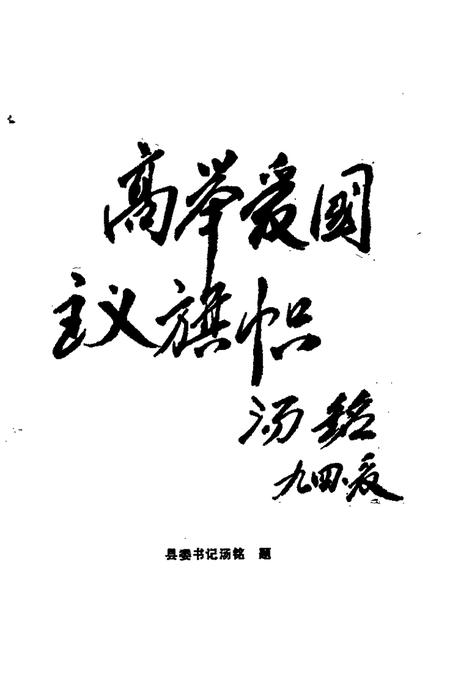 高举爱國
主义旗帜
汤铭
九四.夏
县委书记汤铭 题